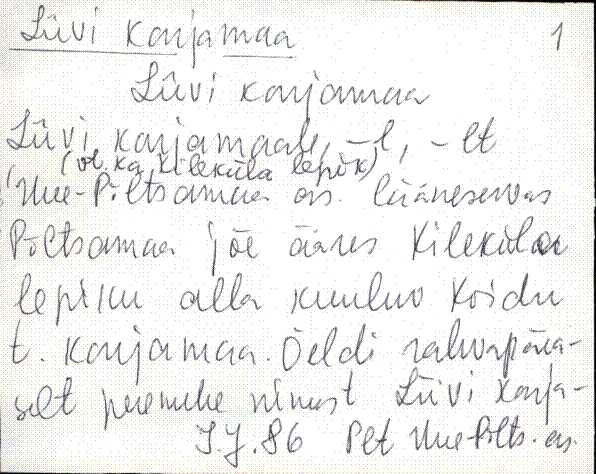 Lüvi karjamaa 1
Lüvi karjamaa
Lüvi karjamaale, -l, -lt
(vt. ka Kileküla lepik)
Uue-Põltsamaa as. lääneservas
Põltsamaa jõe ääres Kileküla
lepiku alla kuuluv Koidu
t. karjamaa. Öeldi rahvapära-
selt peremehe nimest Liivi karja-
J.J. 86 Plt Uue-Põlts. as.